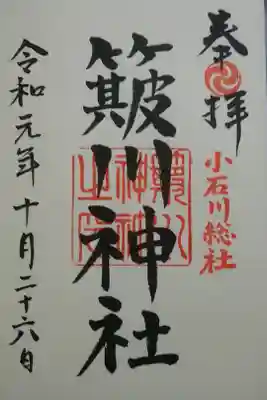 奉拝
小石川総社
簸川神社
令和元年十月二十六日